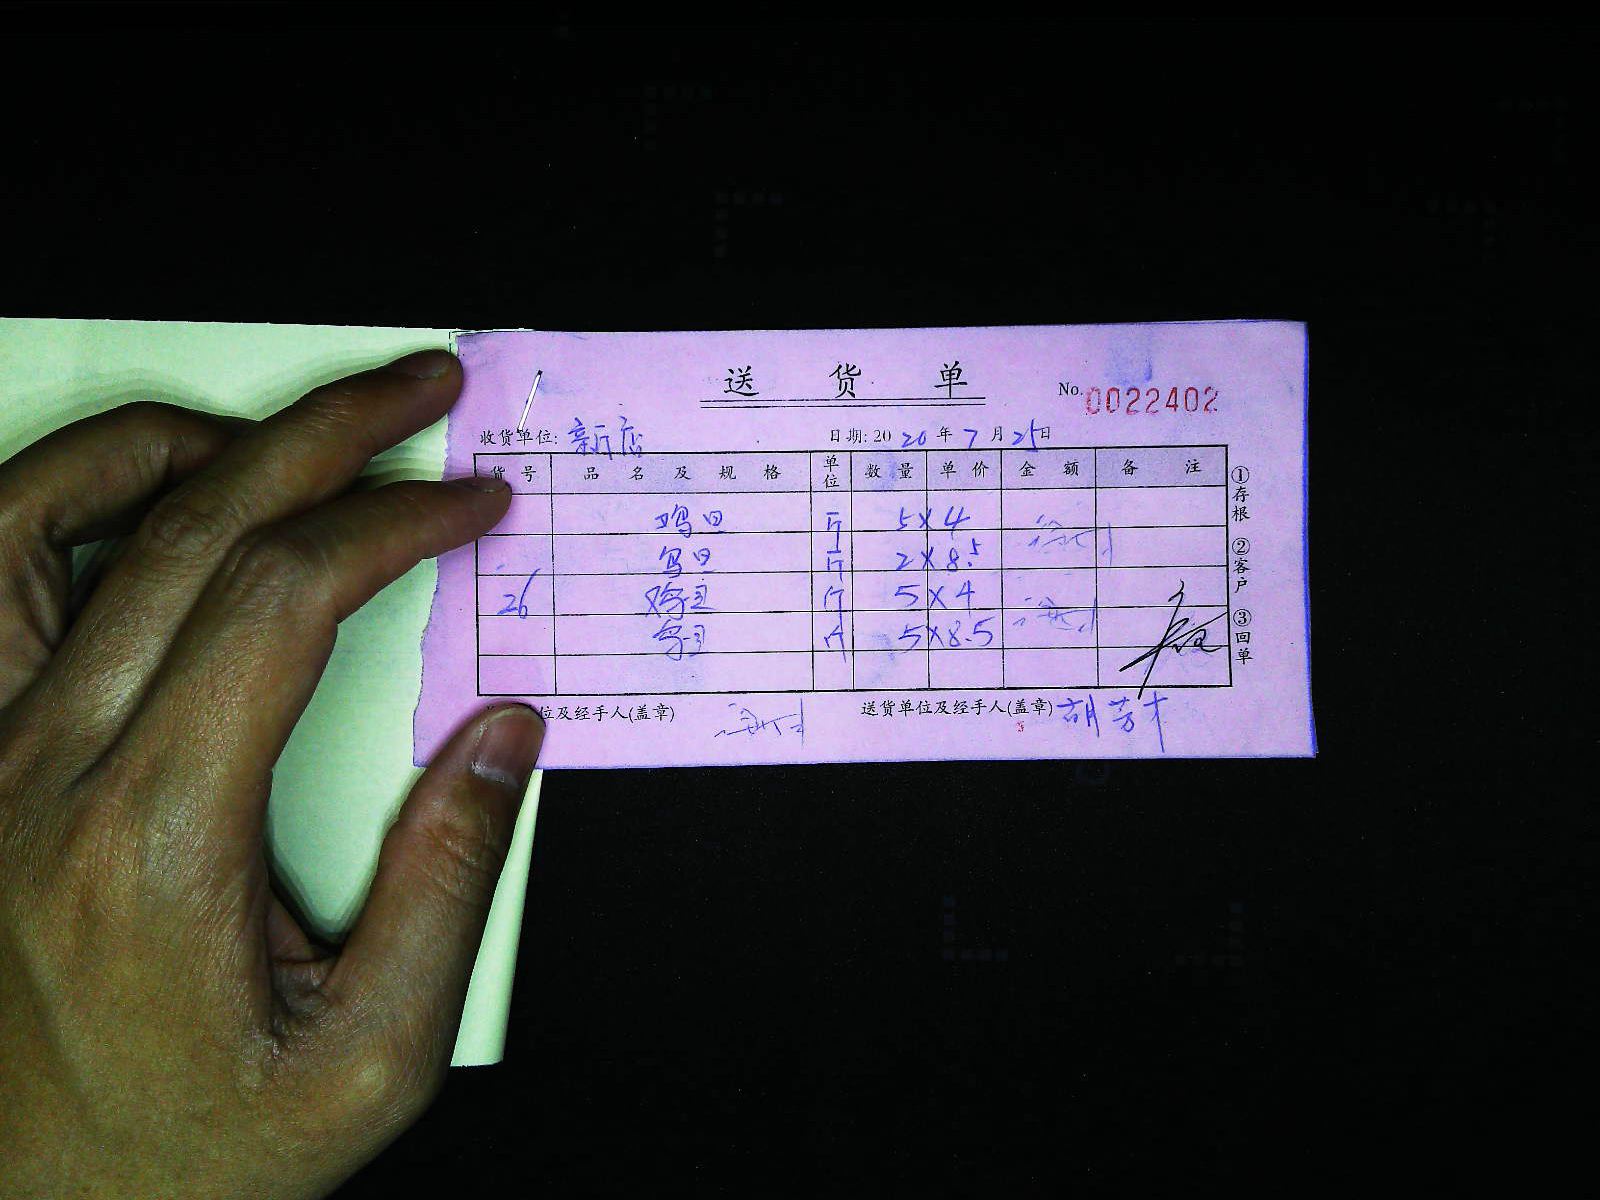 送 货 单
No. 0022402
收货单位: 新店 日期: 20 20 年 7 月 25 日
货 号 品 名 及 规 格 单位 数 量 单 价 金 额 备 注
鸡旦 斤 5 × 4
鸟旦 斤 2 × 8.5
26 鸡旦 斤 5 × 4
鸟旦 斤 5 × 8.5
①存根 ②客户 ③回单
位及经手人(盖章) 送货单位及经手人(盖章) 胡芳才